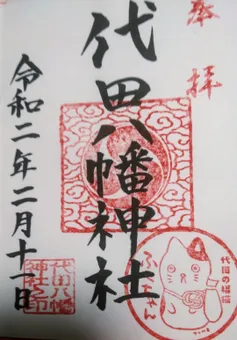 奉拝
代田八幡神社
令和二年二月十一日
代田八幡
神社之印
代田の招福
ふ
ちゃん